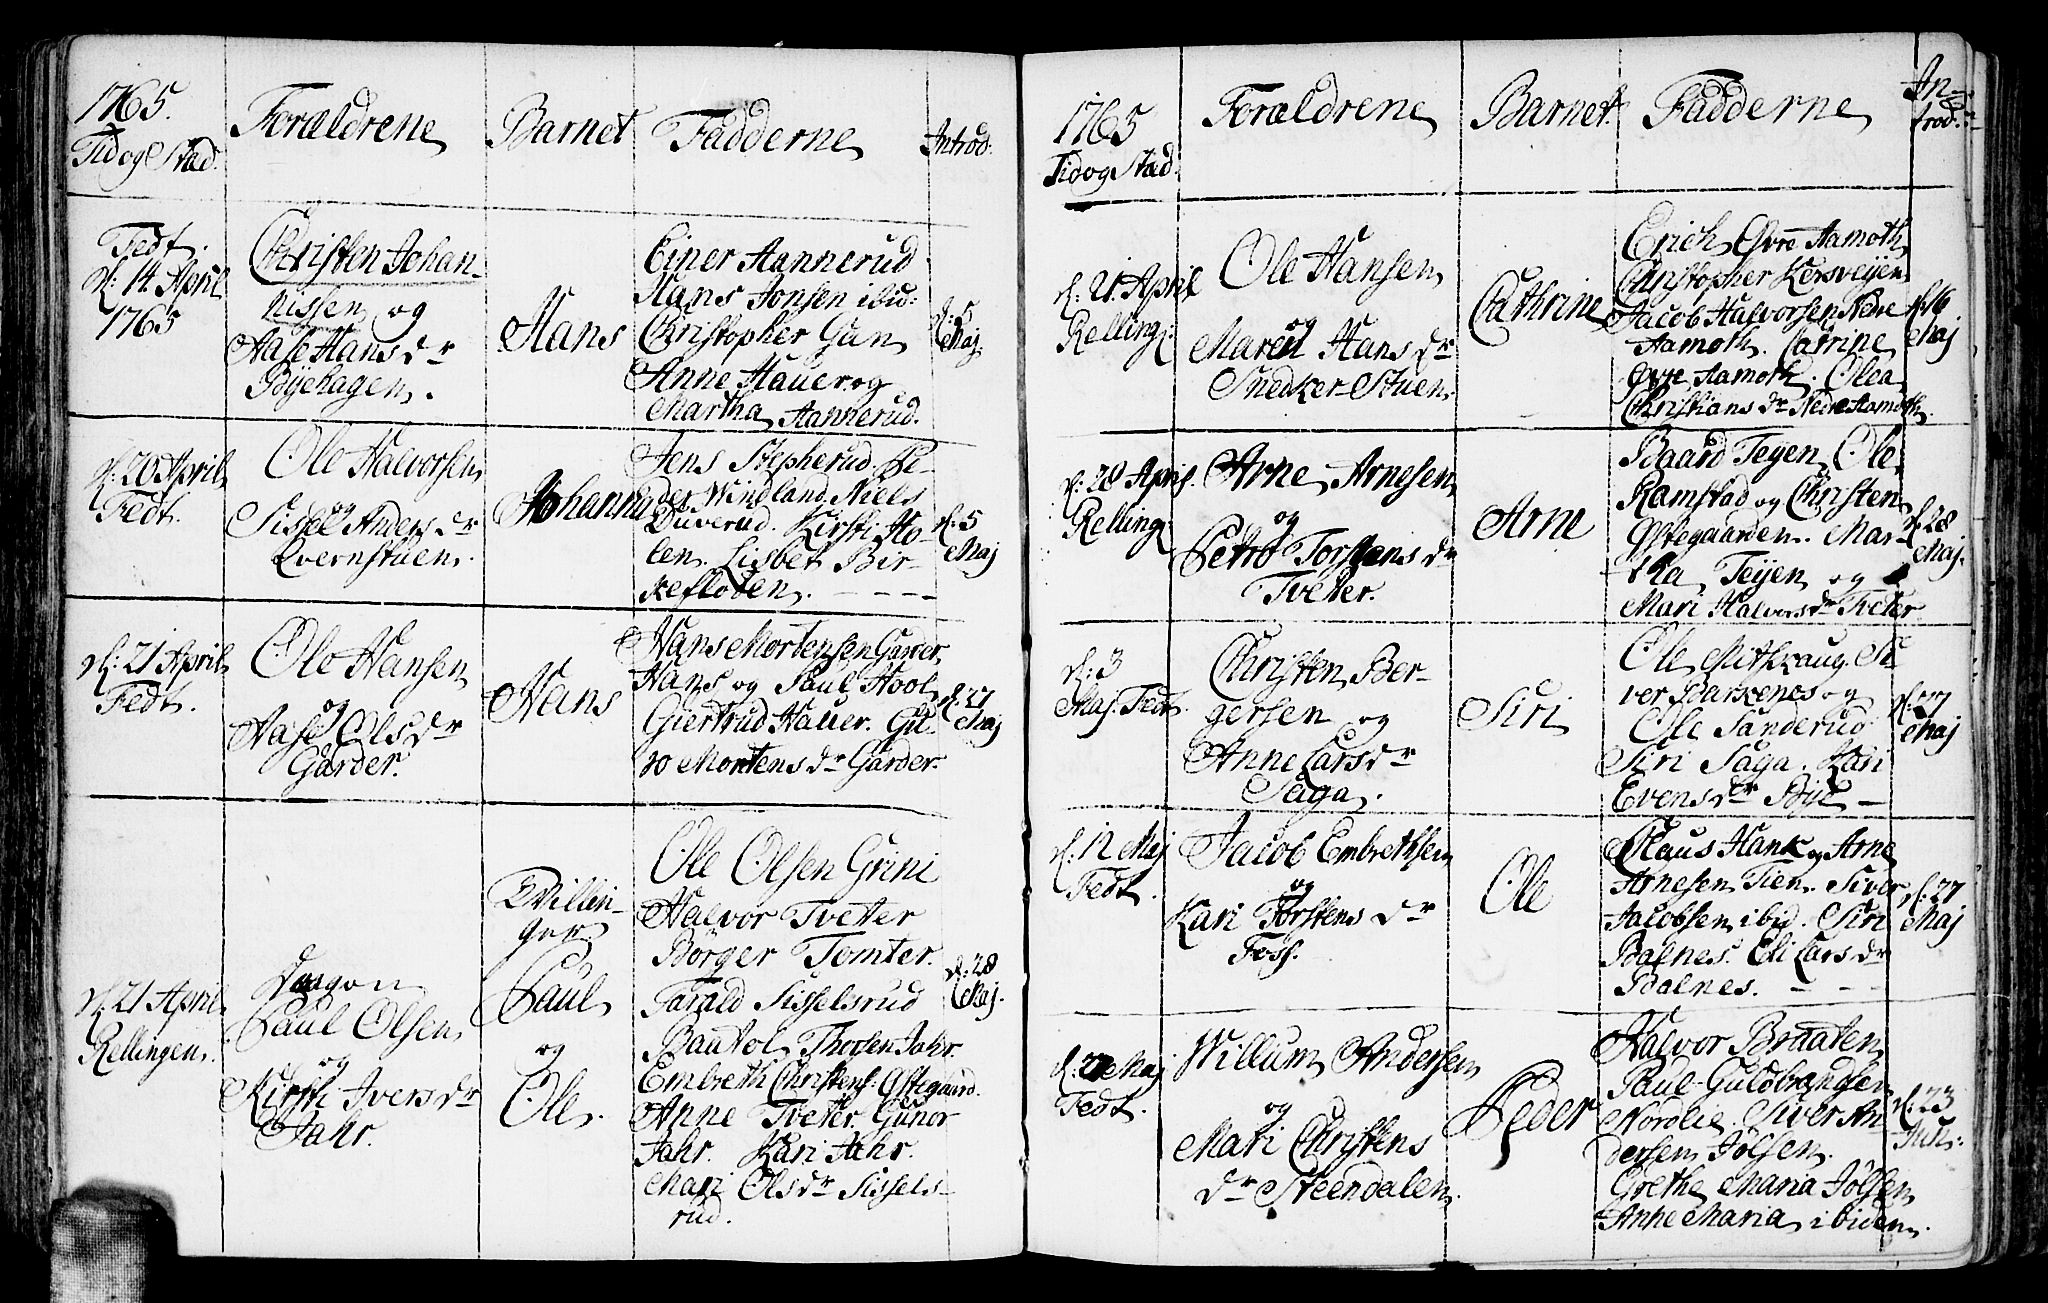 1765.
Tid og Stad.
Forældrene
Barnet
Fadderne
Introd:
Fedt.
d: 14 April
1765
Christen Johan-
nissen og
Aase Hans dr
Byehagen.
Hans
Einer Aannerud
Hans Jonsen ibid:
Christopher Gun
Anne Hauer og
Martha Aannerud.
d: 5
Maj
d: 20 April
Fedt.
Ole Halvorsen
og
Sissel Anders dr
Qvernstuen.
Johanna
Jens Stepherud. Pe-
der Windland Niels
Duverud. Kirsti Ho-
len. Lisbet Bir-
kefloden.
d: 5
Maj
d: 21 April
Fedt.
Ole Hansen
og
Aase Ols dr
Garder.
Hans
Hans Mortensen Garder
Hans og Paul Hool
Giertrud Hauer. Gu-
ro Mortens dr Garder.
d: 27
Maj
d: 21 April
Rellingen.
Paul Olsen
og
Kirsti Ivers dr
Jahr.
Tvillin-
ger
Paul
og
Ole.
Ole Olsen Grini
Halvor Tveter
Börger Tomter.
Tarald Sisselsrud
Bautol Thorsen Jahr.
Embreth Christens: Østegaard.
Anne Tveter. Gunor
Jahr. Kari Jahr.
Mari Ols dr Sissels-
rud.
d: 28
Maj.
1765
Tid og Stad.
Forældrene
Barnet.
Fadderne
In-
trod:
d: 21. April
Relling:
Ole Hansen
og
Maren Hans dr
Snedker-Stuen.
Cathrine
Erich Øvre Aamoth
Christopher Korsveijen
Jacob Halvorsen Nedre
Aamoth. Catrine
Øvre Aamoth. Olea
Christians dr Nedre Aamoth.
d: 16
Maj
d: 28 April.
Relling:
Arne Arnesen
og
Petro Torstens dr
Tveter.
Arne
Baard Teyen, Ole
Ramstad og Christen
Østegaarden. Mar-
tha Teyen og
Mari Halvors dr Tveter
d: 28
Maj.
d: 3
Maj. Fedt.
Christen Ber-
gersen og
Anne Lars dr
Saga.
Siri
Ole Mithaug. Si-
ver Barkenes og
Ole Sanderud
Siri Saga. Kari
Evens dr Bye
d: 27
Maj
d: 12 Maj
Fedt.
Jacob Embrethsen
og
Kari Torstens dr
Foss.
Ole
Claus Hank og Arne
Arnesen Tien. Siver
Jacobsen ibid. Siri
Balnes. Eli Lars dr
Balnes.
d: 27
Maj
d: 27 Maj
Fedt.
Willum Andersen
og
Mari Christens
dr Steendalen.
Peder
Halvor Braaten
Paul Guldbrandsen
Nordlie. Siver An
dersen Jölsen.
Grethe Maria Jölsen
Anne Maria ibidem.
d: 23
Jun: